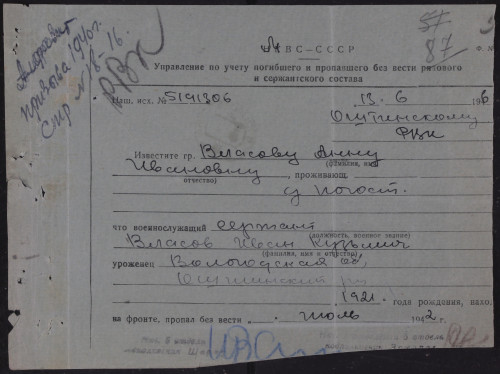 призыва 1940 г.
стр 16.
РВК
57
87
МВС—СССР
Управление по учету погибшего и пропавшего без вести рядового
и сержантского состава
Наш. исх. № 5191306 13. 6 196
Оштинскому
РВК
Известите гр. Власову Анну
(фамилия, имя
Ивановну
отчество) проживающ.
д Погост.
что военнослужащий сержант
(должность, военное звание)
Власов Иван Кузьмич
(фамилия, имя и отчество)
уроженец Вологодская об,
Оштинский рн
1921 года рождения, нахо
на фронте, пропал без вести июль 1942 г.